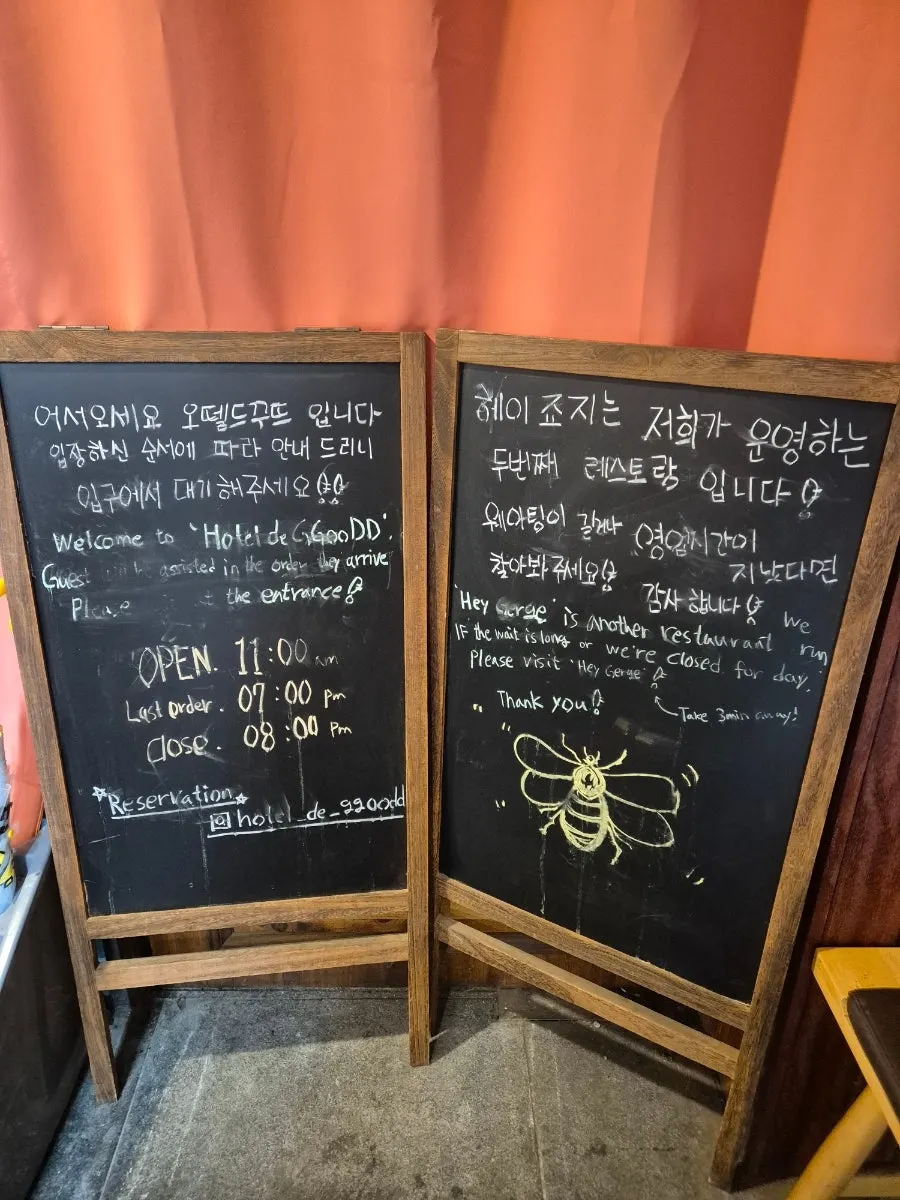 어서오세요 오뗄드꾸뜨 입니다
입장하신 순서에 따라 안내 드리니
입구에서 대기해주세요!!
Welcome to 'Hotel de GGooDD'.
Guest be assisted in the order they arrive
Please the entrance!
OPEN. 11:00 am
Last order. 07:00 pm
close. 08:00 pm
☆Reservation☆
hotel_de_ggoodd
헤이죠지는 저희가 운영하는
두번째 레스토랑 입니다!
웨이팅이 길거나 영업시간이 지났다면
찾아봐주세요! 감사합니다!
'Hey Gerge' is another restaurant we run
IF the wait is long or we're closed for day,
Please visit 'Hey Gerge'!
Thank you!
Take 3min away!